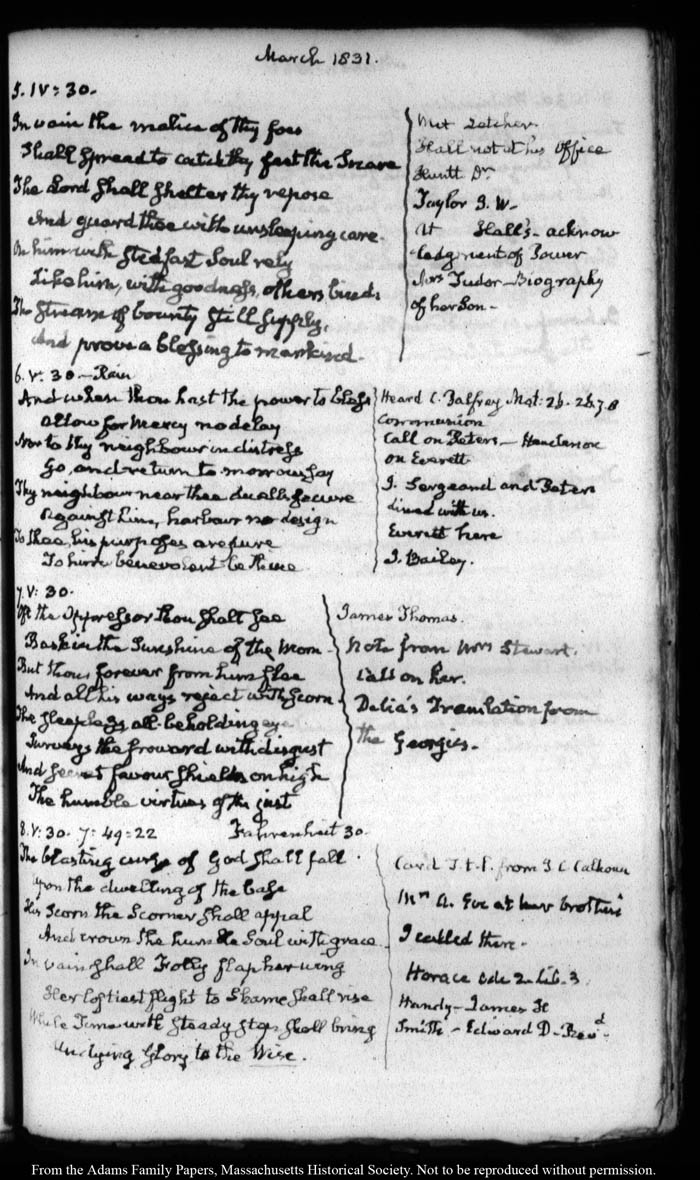 March 1831.
5. IV: 30.
In vain the malice of thy foes
Shall spread to catch thy feet the Snare
The Lord shall shelter thy repose
And guard thee with unsleeping care.
On him with stedfast Soul rely
Like him, with goodness, others bind
The stream of bounty still supply,
And prove a blessing to mankind.
Met
Hall not at his Office
Huntt Dr
Taylor S. W.
At Hall's - acknow
ledgment of Power
Mrs Tudor - Biography
of her Son -
6. V: 30 - Rain
And when thou hast the power to bless
allow for Mercy no delay
Nor to thy neighbour in distress
Go, and return to morrow say
Thy neighbour near thee dwells secure
Against him, harbour no design
To thee, his purposes are pure
To him benevolent be thine
Heard C. Palfrey Mat: 26. 26.7.8
Communion
Call on Peters -
on Everett
J. Sergeant and Peters
dined with us.
Everett here
J. Bailey.
7. V: 30.
Oft the Oppressor thou shalt see
Bask in the Sunshine of the Morn
But thou forever from him flee
And all his ways reject with scorn
The sleepless all-beholding eye
Surveys the froward with disgust
And secret favour shields on high
The humble virtues of the just
James Thomas.
Note from Mrs Stewart.
Call on her.
Delia's Translation from
the Georgics.
8. V: 30. 7: 49=22 Fahrenheit 30.
The blasting curse of God shall fall
Upon the dwelling of the base
His Scorn the Scorner shall appal
And crown the humble Soul with grace
In vain shall Folly flap her wing
Her loftiest flight to Shame shall rise
While Time with steady step shall bring
Undying Glory to the Wise.
Card from J. C. Calhoun
at her brothers
I called there.
Horace Ode 2. Lib. 3.
Handy - James H
Smith - Edward D - Revd
From the Adams Family Papers, Massachusetts Historical Society. Not to be reproduced without permission.